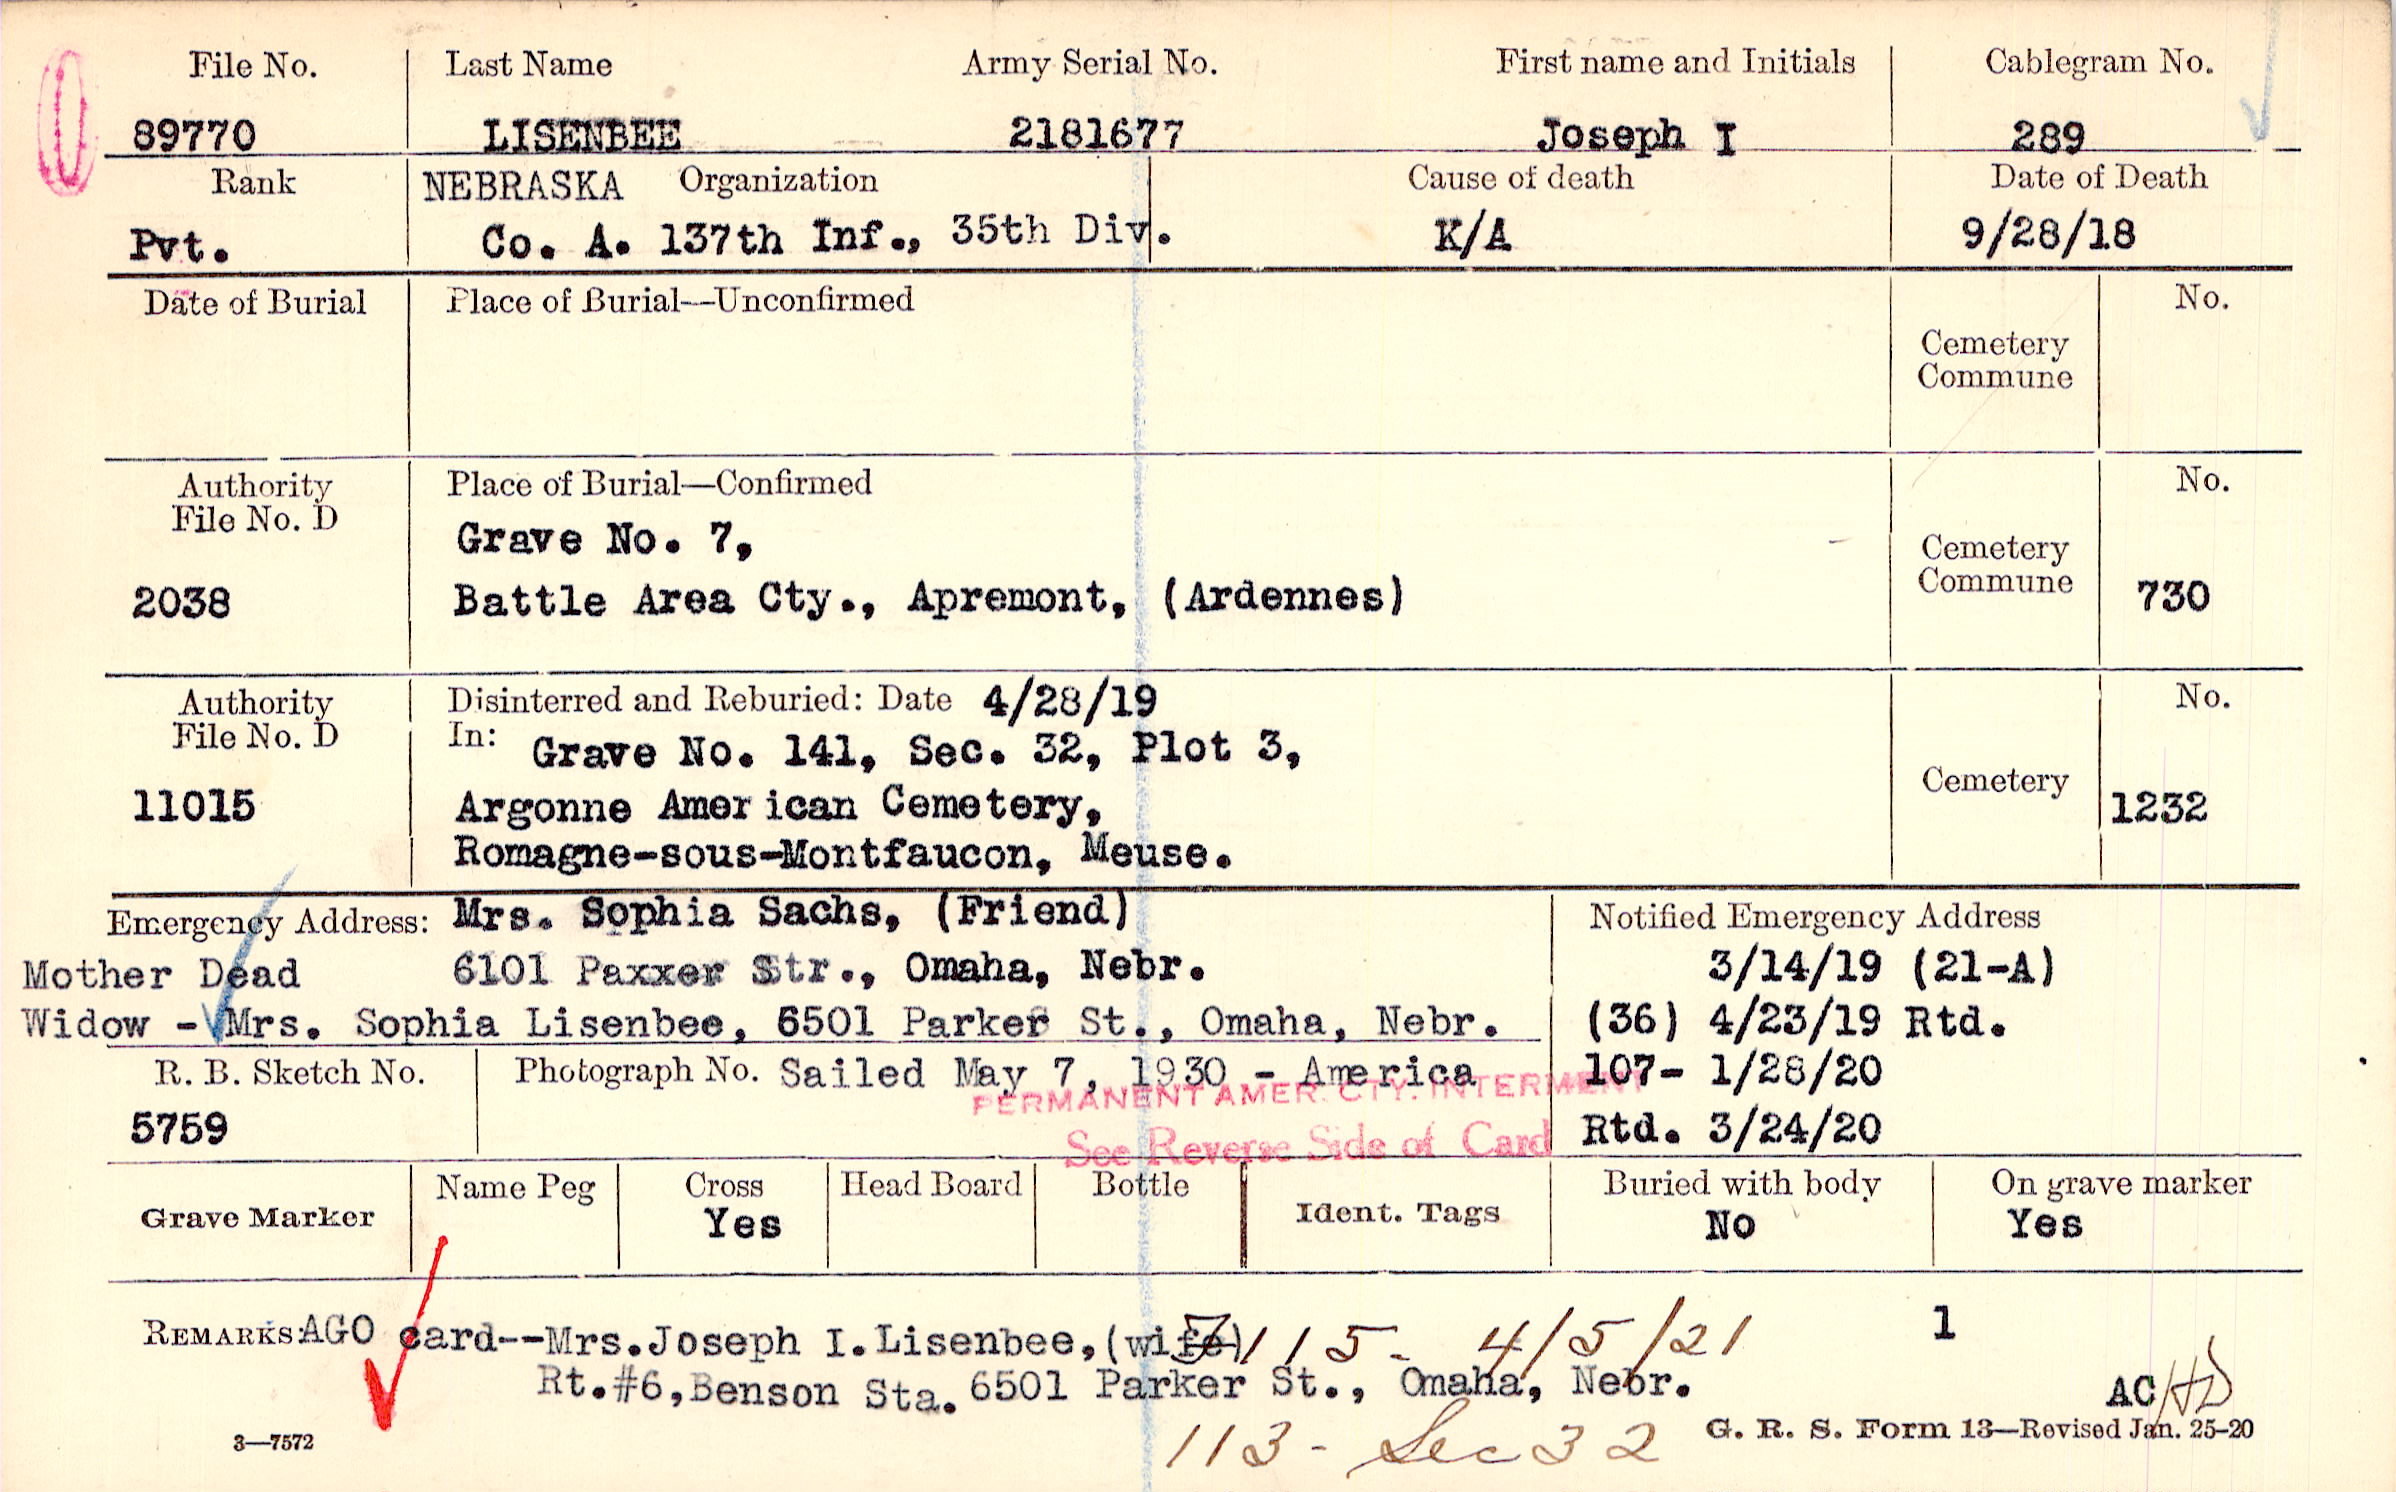 File No. Last Name Army Serial No. First name and Initials Cablegram No.
89770 LISENBEE 2181677 Joseph I 289
Rank NEBRASKA Organization Cause of death Date of Death
Pvt. Co. A. 137th Inf., 35th Div. K/A 9/28/18
Date of Burial Place of Burial—Unconfirmed No.
Cemetery
Commune
Authority Place of Burial—Confirmed No.
File No. D
Grave No. 7,
Cemetery
Commune
2038 Battle Area Cty., Apremont, (Ardennes) 730
Authority Disinterred and Reburied: Date 4/28/19 No.
File No. D In: Grave No. 141, Sec. 32, Plot 3,
Cemetery
11015 Argonne American Cemetery, 1232
Romagne-sous-Montfaucon, Meuse.
Emergency Address: Mrs. Sophia Sachs, (Friend) Notified Emergency Address
Mother Dead 6101 Paxxer Str., Omaha, Nebr. 3/14/19 (21-A)
Widow - Mrs. Sophia Lisenbee, 6501 Parker St., Omaha, Nebr. (36) 4/23/19 Rtd.
R. B. Sketch No. Photograph No. Sailed May 7, 1930 - America 107- 1/28/20
PERMANENT AMER. CTY. INTERMENT
5759 See Reverse Side of Card Rtd. 3/24/20
Grave Marker Name Peg Cross Head Board Bottle Ident. Tags Buried with body On grave marker
Yes No Yes
REMARKS: AGO card--Mrs. Joseph I. Lisenbee, (wife) 115- 4/5/21 1
Rt.#6, Benson Sta. 6501 Parker St., Omaha, Nebr. AC
113 - Sec 32
3—7572 G. R. S. Form 13—Revised Jan. 25-20